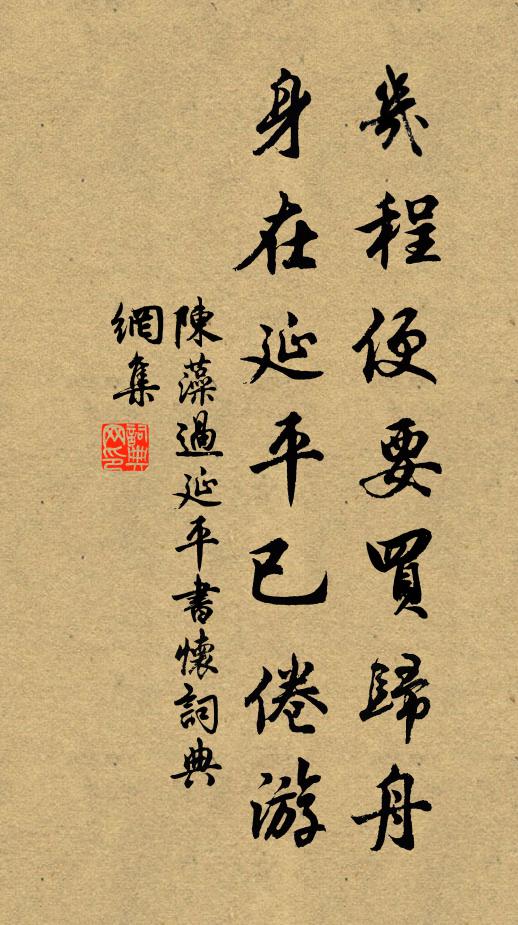 幾程便要買歸舟
身在延平已倦游
陳藻過延平書懷詞典
網集
詞典網印